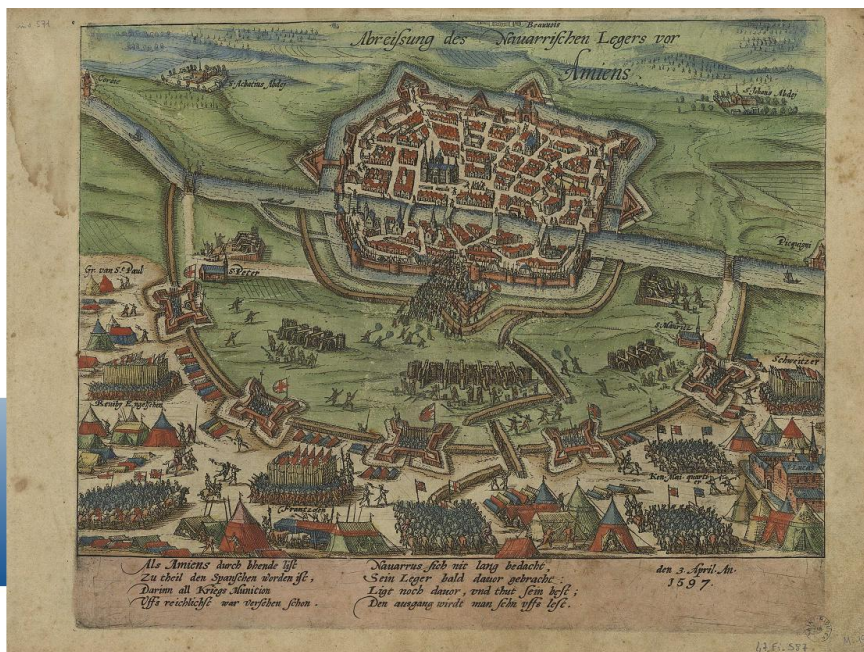 Beauuois
Abreißung des Nauarrischen Legers vor
Amiens.
Corbie
S. Achatius Abdej
S. Johans Abdej
Picquigni
Gr. van S.t Paul
S. Peter
S. Mauritz
Schweitzer
Frantzosen
S. Lucas
Als Amiens durch bhende list
Zu theil den Spanschen worden ist,
Darinn all Kriegs Munition
Vffs reichlichst war versehen schon.
Nauarrus sich nit lang bedacht,
Sein Leger bald dauor gebracht:
Ligt noch dauor, vnd thut sein best;
Den ausgang wirdt man sehn vffs lest.
den 3. April. An.
1597.